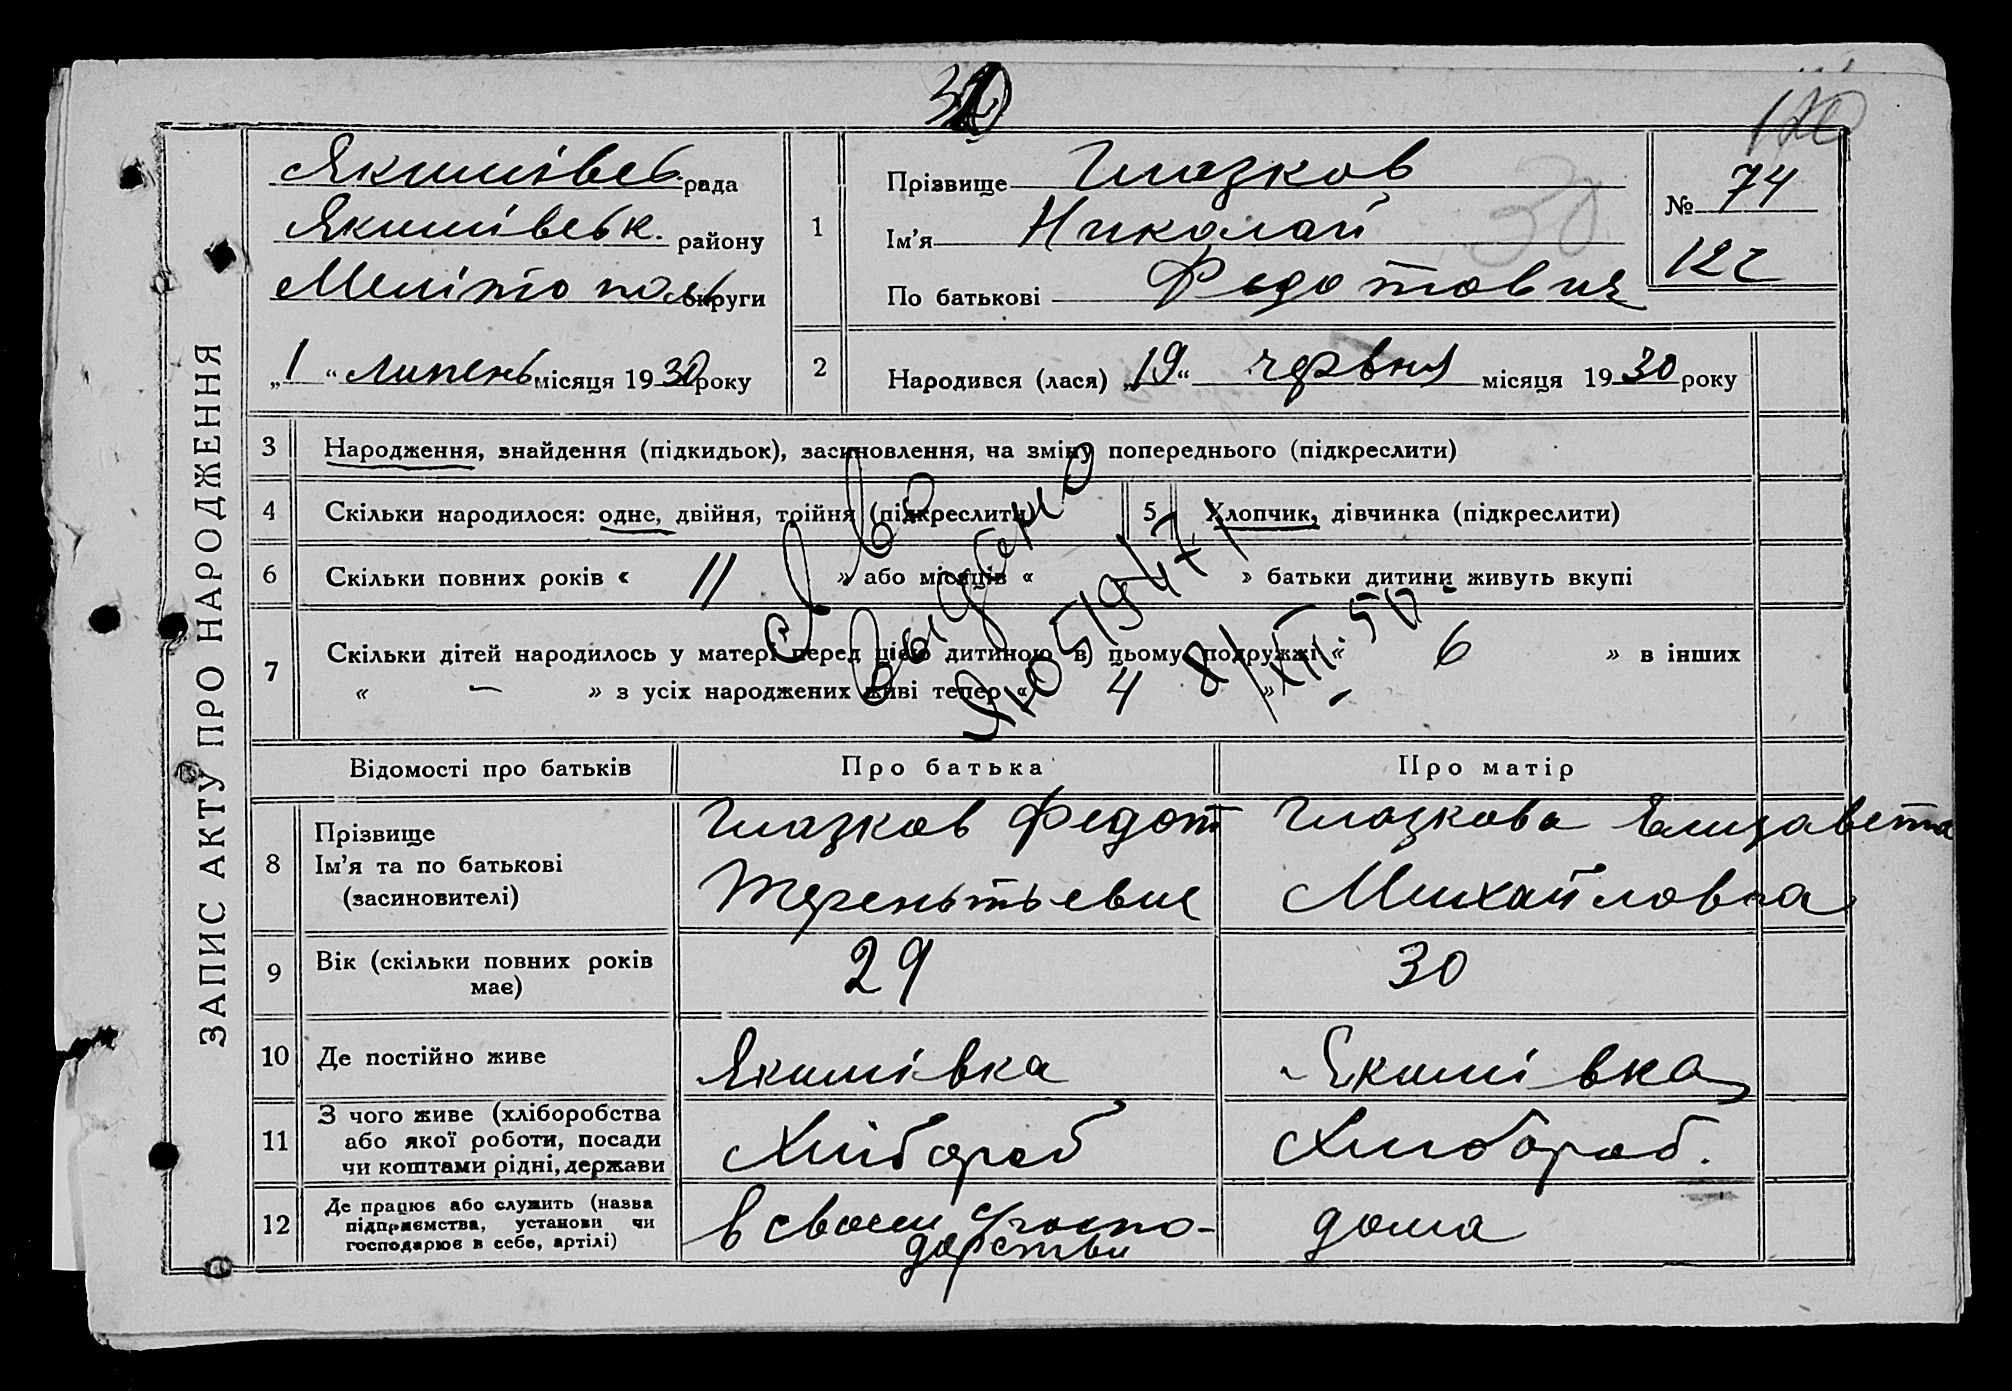 30
120
ЗАПИС АКТУ ПРО НАРОДЖЕННЯ
Якимівсь. рада
Якимівськ. району
Мелітополь округи
„1“ липень місяця 1930 року
1
Прізвище Глазков
Ім'я Николай
По батькові Федотович
30
№ 74
122
2
Народився (лася) „19“ червня місяця 1930 року
3 Народження, знайдення (підкидьок), засиновлення, на зміну попереднього (підкреслити)
4 Скільки народилося: одне, двійня, трійня (підкреслити)
5 Хлопчик, дівчинка (підкреслити)
6 Скільки повних років « 11 » або місяців « » батьки дитини живуть вкупі
7 Скільки дітей народилось у матері перед цією дитиною в цьому подружжі « 6 » в інших
« — » з усіх народжених живі тепер « 4 » —
С В-во
выдано
ЯЮ 519477
8/XII.50
Відомості про батьків
Про батька
Про матір
8 Прізвище
Ім'я та по батькові
(засиновителі)
Глазков Федот
Терентьевич
Глазкова Елизавета
Михайловна
9 Вік (скільки повних років
має)
29
30
10 Де постійно живе
Якимівка
Якимівка
11 З чого живе (хліборобства
або якої роботи, посади
чи коштами рідні, держави
Хлібороб
Хлибороб.
12 Де працює або служить (назва
підприємства, установи чи
господарює в себе, артілі)
В своем госпо-
дарстви
дома